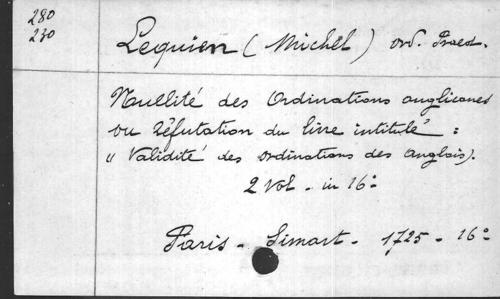 280
230
Lequien (Michel) ord. Praed.
Nullité des Ordinations anglicanes
ou Réfutation du livre intitulé :
" Validité des ordinations des anglais).
2 Vol - in 16°
Paris - Simart - 1725 - 16°